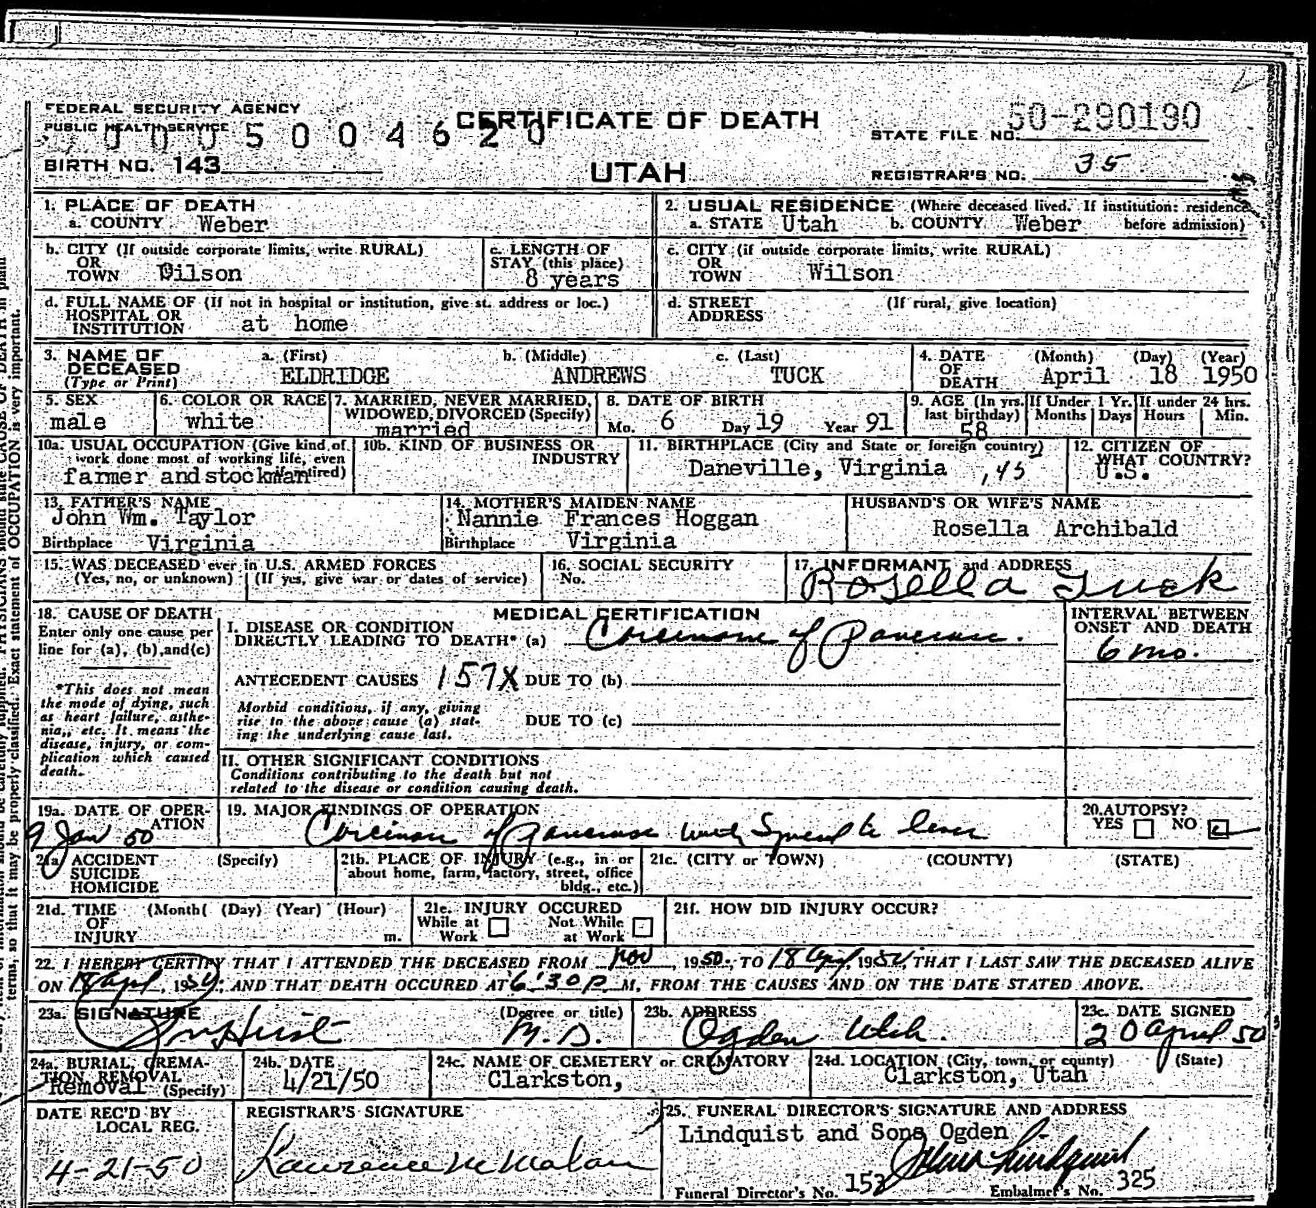 FEDERAL SECURITY AGENCY
PUBLIC HEALTH SERVICE
0005004620
CERTIFICATE OF DEATH
STATE FILE NO. 50-290190
BIRTH NO. 143
UTAH
REGISTRAR'S NO. 35
1. PLACE OF DEATH
a. COUNTY Weber
2. USUAL RESIDENCE (Where deceased lived. If institution: residence before admission)
a. STATE Utah b. COUNTY Weber
b. CITY (If outside corporate limits, write RURAL)
OR
TOWN Oilson
c. LENGTH OF
STAY (this place)
8 years
c. CITY (if outside corporate limits, write RURAL)
OR
TOWN Wilson
d. FULL NAME OF (If not in hospital or institution, give st. address or loc.)
HOSPITAL OR
INSTITUTION at home
d. STREET (If rural, give location)
ADDRESS
3. NAME OF
DECEASED
(Type or Print)
a. (First) b. (Middle) c. (Last)
ELDRIDGE ANDREWS TUCK
4. DATE (Month) (Day) (Year)
OF
DEATH April 18 1950
5. SEX
male
6. COLOR OR RACE
white
7. MARRIED, NEVER MARRIED,
WIDOWED, DIVORCED (Specify)
married
8. DATE OF BIRTH
Mo. 6 Day 19 Year 91
9. AGE (In yrs. last birthday) 58
If Under 1 Yr. Months Days
If under 24 hrs. Hours Min.
10a. USUAL OCCUPATION (Give kind of
work done most of working life, even
if retired)
farmer and stockman
10b. KIND OF BUSINESS OR
INDUSTRY
11. BIRTHPLACE (City and State or foreign country)
Daneville, Virginia ,45
12. CITIZEN OF
WHAT COUNTRY?
U.S.
13. FATHER'S NAME
John Wm. Taylor
Birthplace Virginia
14. MOTHER'S MAIDEN NAME
Nannie Frances Hoggan
Birthplace Virginia
HUSBAND'S OR WIFE'S NAME
Rosella Archibald
15. WAS DECEASED ever in U.S. ARMED FORCES
(Yes, no, or unknown) (If yes, give war or dates of service)
16. SOCIAL SECURITY
No.
17. INFORMANT and ADDRESS
Rosella Tuck
18. CAUSE OF DEATH
Enter only one cause per
line for (a), (b), and (c)
*This does not mean
the mode of dying, such
as heart failure, asthe-
nia, etc. It means the
disease, injury, or com-
plication which caused
death.
MEDICAL CERTIFICATION
I. DISEASE OR CONDITION
DIRECTLY LEADING TO DEATH* (a) Carcinoma of Pancreas.
ANTECEDENT CAUSES 157X DUE TO (b)
Morbid conditions, if any, giving
rise to the above cause (a) stat-
ing the underlying cause last.
DUE TO (c)
II. OTHER SIGNIFICANT CONDITIONS
Conditions contributing to the death but not
related to the disease or condition causing death.
INTERVAL BETWEEN
ONSET AND DEATH
6 mo.
19a. DATE OF OPER-
ATION
9 Jan 50
19. MAJOR FINDINGS OF OPERATION
Carcinoma of Pancreas with Spread to liver
20. AUTOPSY?
YES NO
21a. ACCIDENT (Specify)
SUICIDE
HOMICIDE
21b. PLACE OF INJURY (e.g., in or
about home, farm, factory, street, office
bldg., etc.)
21c. (CITY or TOWN) (COUNTY) (STATE)
21d. TIME (Month( (Day) (Year) (Hour)
OF
INJURY m.
21e. INJURY OCCURED
While at Work Not While at Work
21f. HOW DID INJURY OCCUR?
22. I HEREBY CERTIFY THAT I ATTENDED THE DECEASED FROM Nov, 1950, TO 18 Apl, 1950, THAT I LAST SAW THE DECEASED ALIVE
ON 18 apl, 1950; AND THAT DEATH OCCURED AT 6:30 P M, FROM THE CAUSES AND ON THE DATE STATED ABOVE.
23a. SIGNATURE (Degree or title)
Hirst M.D.
23b. ADDRESS
Ogden Utah.
23c. DATE SIGNED
20 April 50
24a. BURIAL, CREMA-
TION REMOVAL
Removal (Specify)
24b. DATE
4/21/50
24c. NAME OF CEMETERY or CREMATORY
Clarkston,
24d. LOCATION (City, town, or county) (State)
Clarkston, Utah
DATE REC'D BY
LOCAL REG.
4-21-50
REGISTRAR'S SIGNATURE
Lawrence M Malan
25. FUNERAL DIRECTOR'S SIGNATURE AND ADDRESS
Lindquist and Sons Ogden
John Lindquist
Funeral Director's No. 152 Embalmer's No. 325